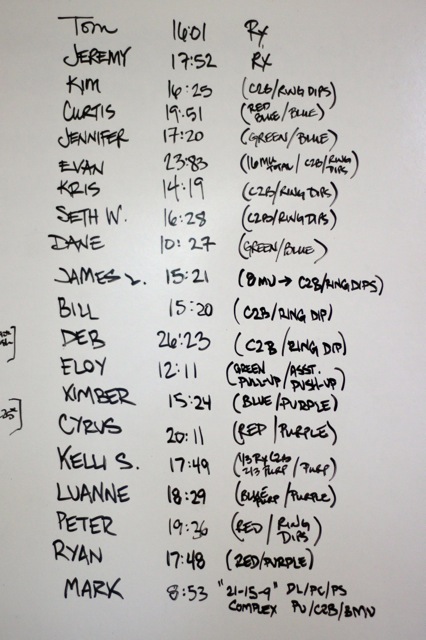 Tom 16:01 Rx
JEREMY 17:52 RX
KIM 16:25 (C2B/RING DIPS)
CURTIS 19:51 (RED BLUE/BLUE)
JENNIFER 17:20 (GREEN/BLUE)
EVAN 23:83 (16 MU TOTAL/C2B/RING DIPS)
KRIS 14:19 (C2B/RING DIPS)
SETH W. 16:28 (C2B/RING DIPS)
DANE 10:27 (GREEN/BLUE)
JAMES L. 15:21 (8 MU → C2B/RING DIPS)
BILL 15:20 (C2B/RING DIP)
DEB 26:23 (C2B/RING DIP)
ELOY 12:11 (GREEN PULL-UP/ASST. PUSH-UP)
KIMBER 15:24 (BLUE/PURPLE)
CYRUS 20:11 (RED/PURPLE)
KELLI S. 17:49 (1/3 RX C2B 2/3 PURP/PURP)
LUANNE 18:29 (BLUE PURP/PURPLE)
PETER 19:36 (RED/RING DIPS)
RYAN 17:48 (RED/PURPLE)
MARK 8:53 "21-15-9" DL/PC/PS
COMPLEX PU/C2B/BMU